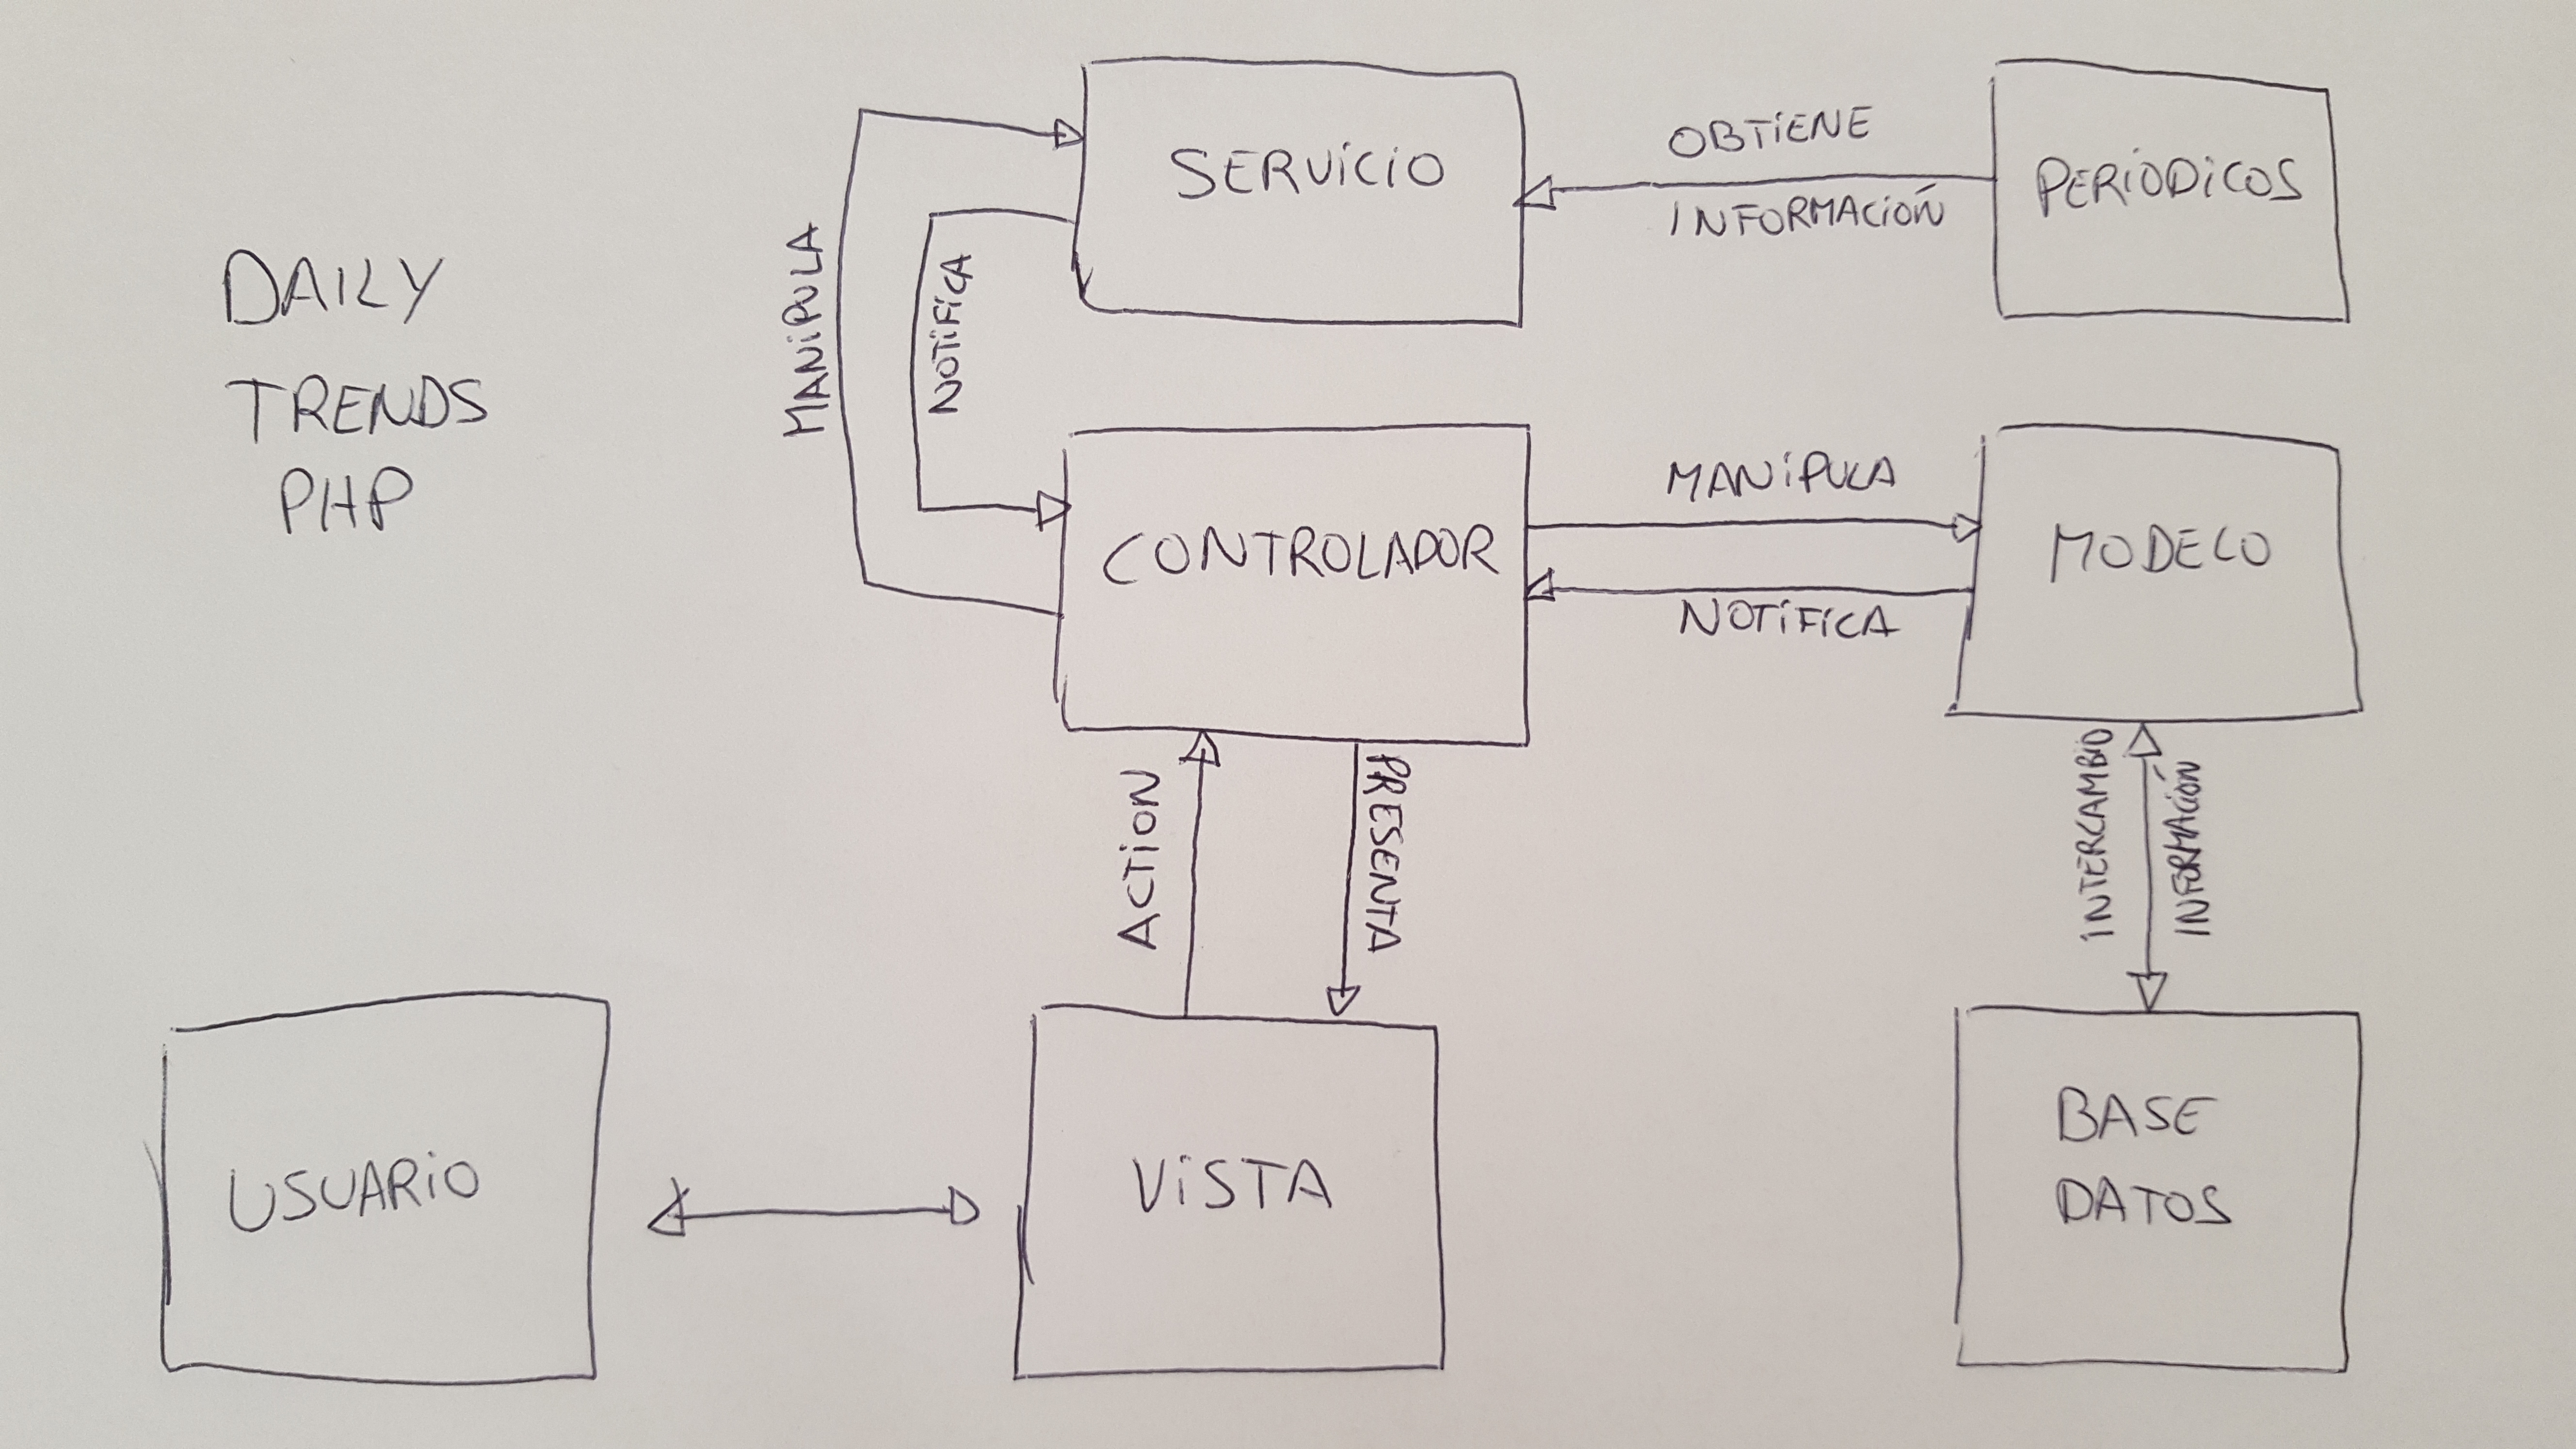 DAILY
TRENDS
PHP
SERVICIO
OBTIENE
INFORMACIÓN
PERIODICOS
MANIPULA
NOTIFICA
CONTROLADOR
MANIPULA
NOTIFICA
MODELO
ACTION
PRESENTA
INTERCAMBIO
INFORMACIÓN
USUARIO
VISTA
BASE
DATOS